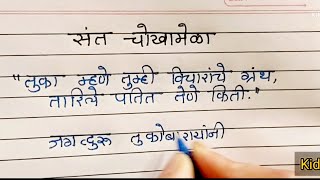 संत चोखामेळा
"तुका म्हणे तुम्ही विचारांचे ग्रंथ,
तारिले पतित तेणे किती."
जगद्गुरू तुकोबारायांनी
Kid